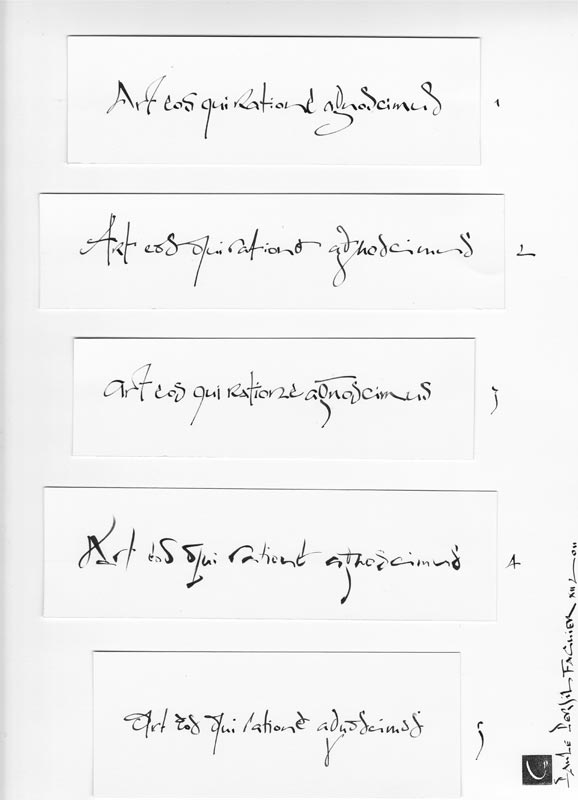 Art eos qui ratione agnoscimus 1
Art eos qui ratione agnoscimus 2
art eos qui ratione agnoscimus 3
Art eos qui ratione agnoscimus 4
Art eos qui ratione agnoscimus 5